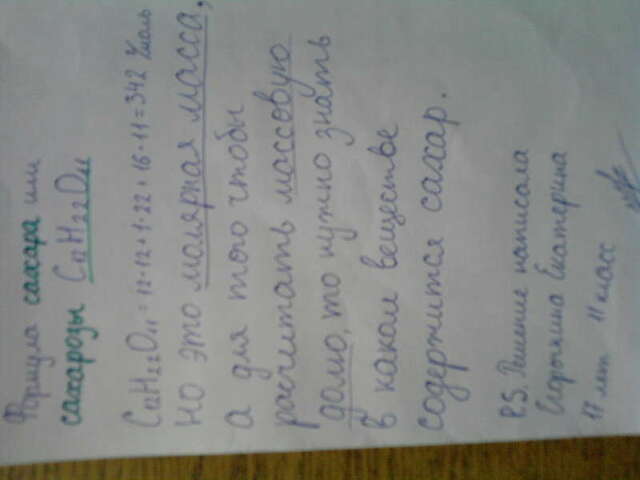 Формула сахара или
сахарозы C12H22O11
C12H22O11 = 12·12+1·22+16·11=342 г/моль
но это молярная масса,
а для того чтобы
расчитать массовую
долю, то нужно знать
в каком веществе
содержится сахар.
P.S. Решение написала
Екатерина
17 лет 11 класс